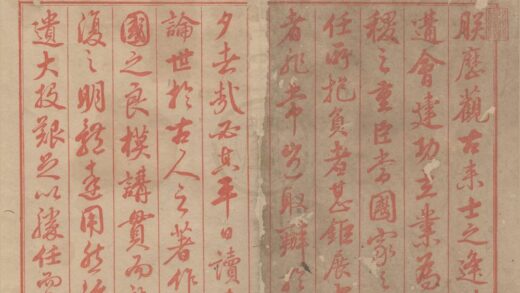 朕歷觀古來士之逢
遘會建功立業為
稷之重臣當國家之
任所抱負者甚鉅展
者非常豈取辦於
夕者哉必其平日讀
論世於古人之著作
國之良模講貫而
復之明體達用然後
遺大投艱足以勝任而